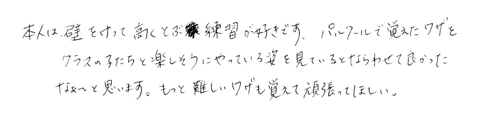 本人は、壁をけって高くとぶ練習が好きです。パルクールで覚えたワザを
クラスの子たちと楽しそうにやっている姿を見ているとならわせて良かった
なぁ〜と思います。もっと難しいワザも覚えて頑張ってほしい。